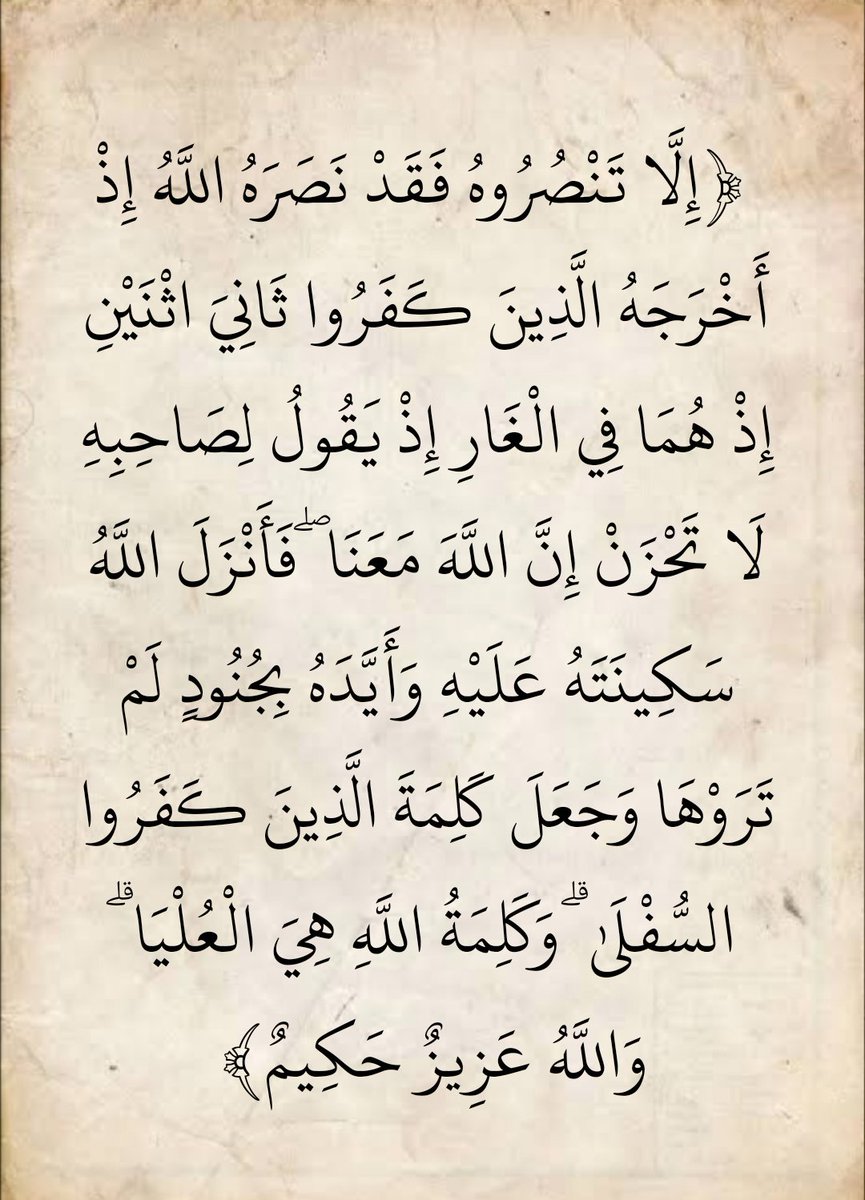 ﴿إِلَّا تَنْصُرُوهُ فَقَدْ نَصَرَهُ اللَّهُ إِذْ
أَخْرَجَهُ الَّذِينَ كَفَرُوا ثَانِيَ اثْنَيْنِ
إِذْ هُمَا فِي الْغَارِ إِذْ يَقُولُ لِصَاحِبِهِ
لَا تَحْزَنْ إِنَّ اللَّهَ مَعَنَا ۖ فَأَنْزَلَ اللَّهُ
سَكِينَتَهُ عَلَيْهِ وَأَيَّدَهُ بِجُنُودٍ لَمْ
تَرَوْهَا وَجَعَلَ كَلِمَةَ الَّذِينَ كَفَرُوا
السُّفْلَىٰ ۗ وَكَلِمَةُ اللَّهِ هِيَ الْعُلْيَا ۗ
وَاللَّهُ عَزِيزٌ حَكِيمٌ﴾